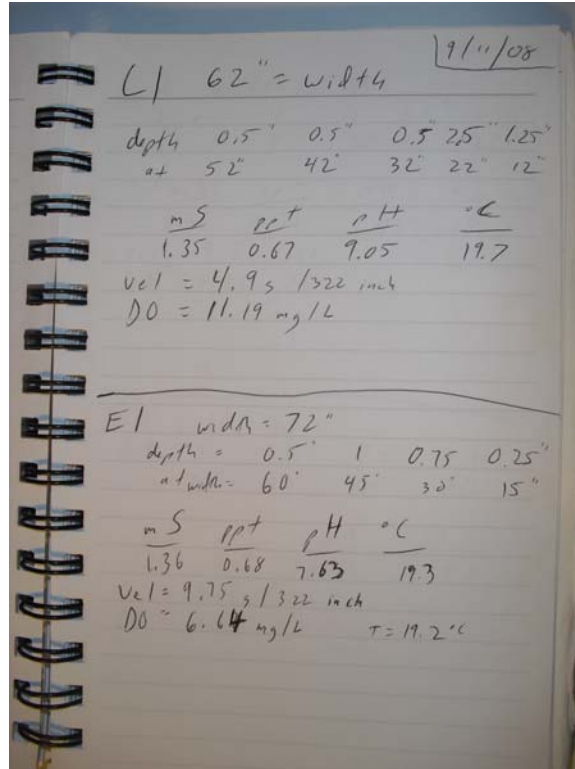 9/11/08
L1 62" = width
depth 0.5" 0.5" 0.5" 2.5" 1.25"
at 52" 42" 32" 22" 12"
mS ppt pH °C
1.35 0.67 9.05 19.7
vel = 4.9 s /322 inch
DO = 11.19 mg/L
E1 width = 72"
depth = 0.5" 1 0.75 0.25"
at width = 60" 45" 30" 15"
mS ppt pH °C
1.36 0.68 7.63 19.3
Vel = 9.75 s / 322 inch
DO = 6.64 mg/L T = 19.2 °C